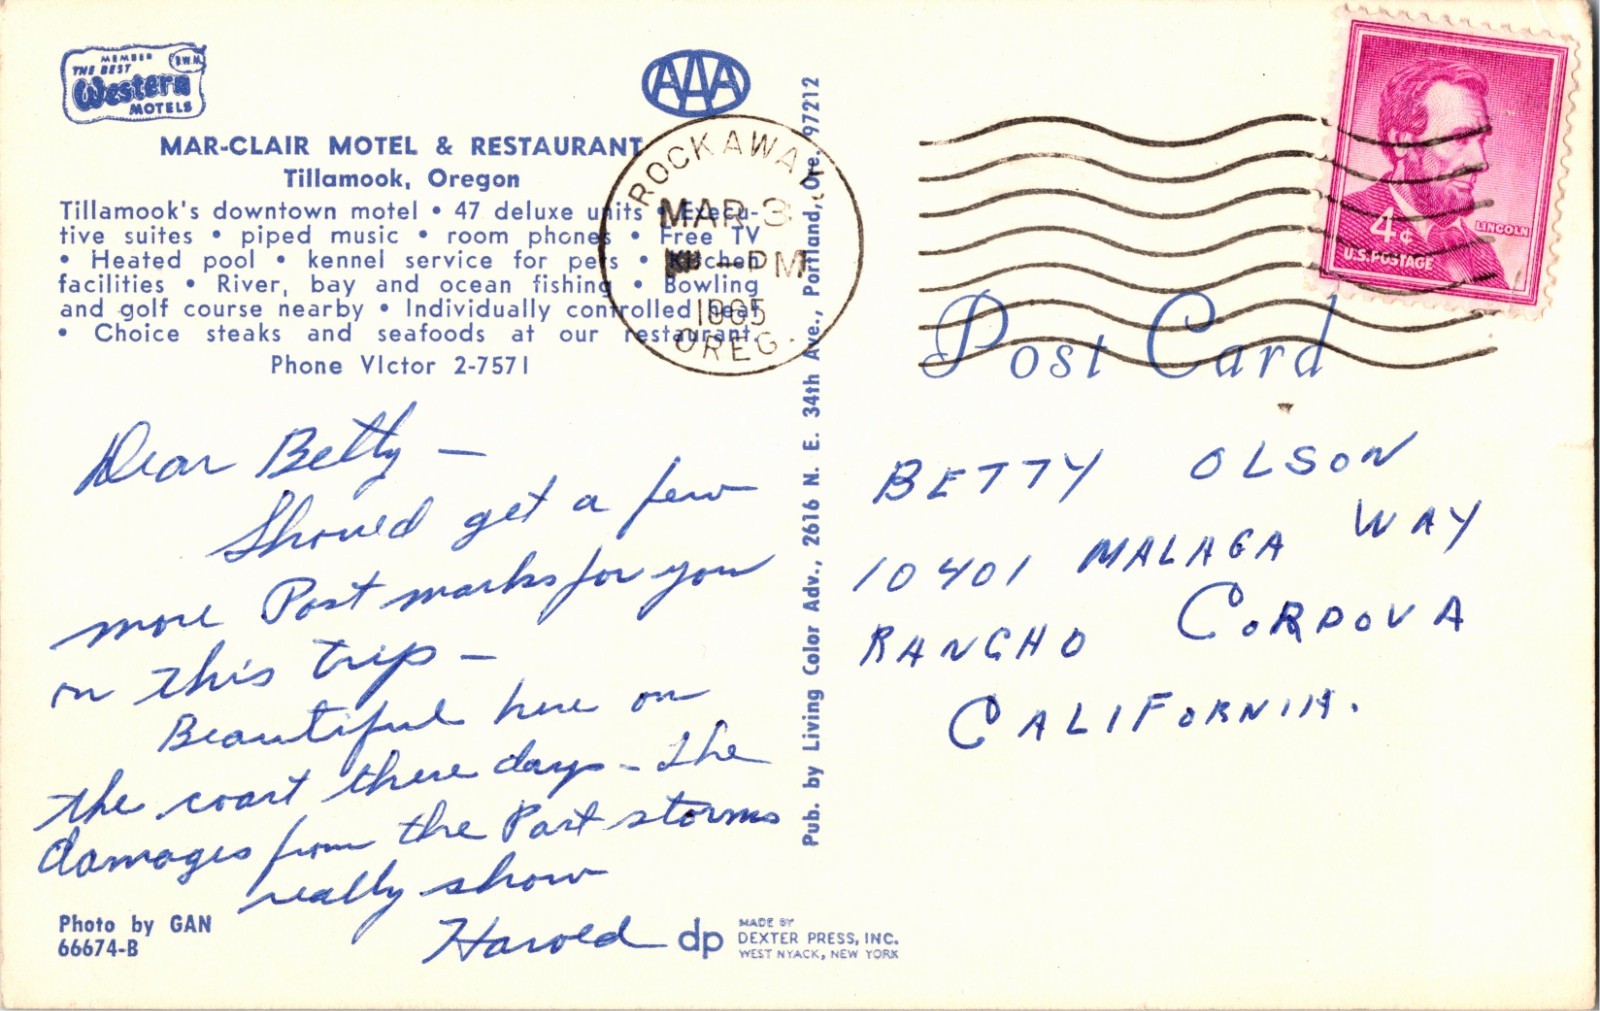 MEMBER
THE BEST
B.W.M.
Western
MOTELS
AAA
MAR-CLAIR MOTEL & RESTAURANT
Tillamook, Oregon
Tillamook's downtown motel • 47 deluxe units • Execu-
tive suites • piped music • room phones • Free TV
• Heated pool • kennel service for pets • Kitchen
facilities • River, bay and ocean fishing • Bowling
and golf course nearby • Individually controlled heat
• Choice steaks and seafoods at our restaurant.
Phone VIctor 2-7571
ROCKAWAY
MAR 3
PM
1965
OREG.
Dear Betty —
Should get a few
more Post marks for you
on this trip —
Beautiful here on
the coast these days — The
damages from the Past storms
really show
Harold
Photo by GAN
66674-B
dp
MADE BY
DEXTER PRESS, INC.
WEST NYACK, NEW YORK
Pub. by Living Color Adv., 2616 N. E. 34th Ave., Portland, Ore. 97212
4¢
LINCOLN
U.S. POSTAGE
Post Card
BETTY OLSON
10401 MALAGA WAY
RANCHO CORDOVA
CALIFORNIA.